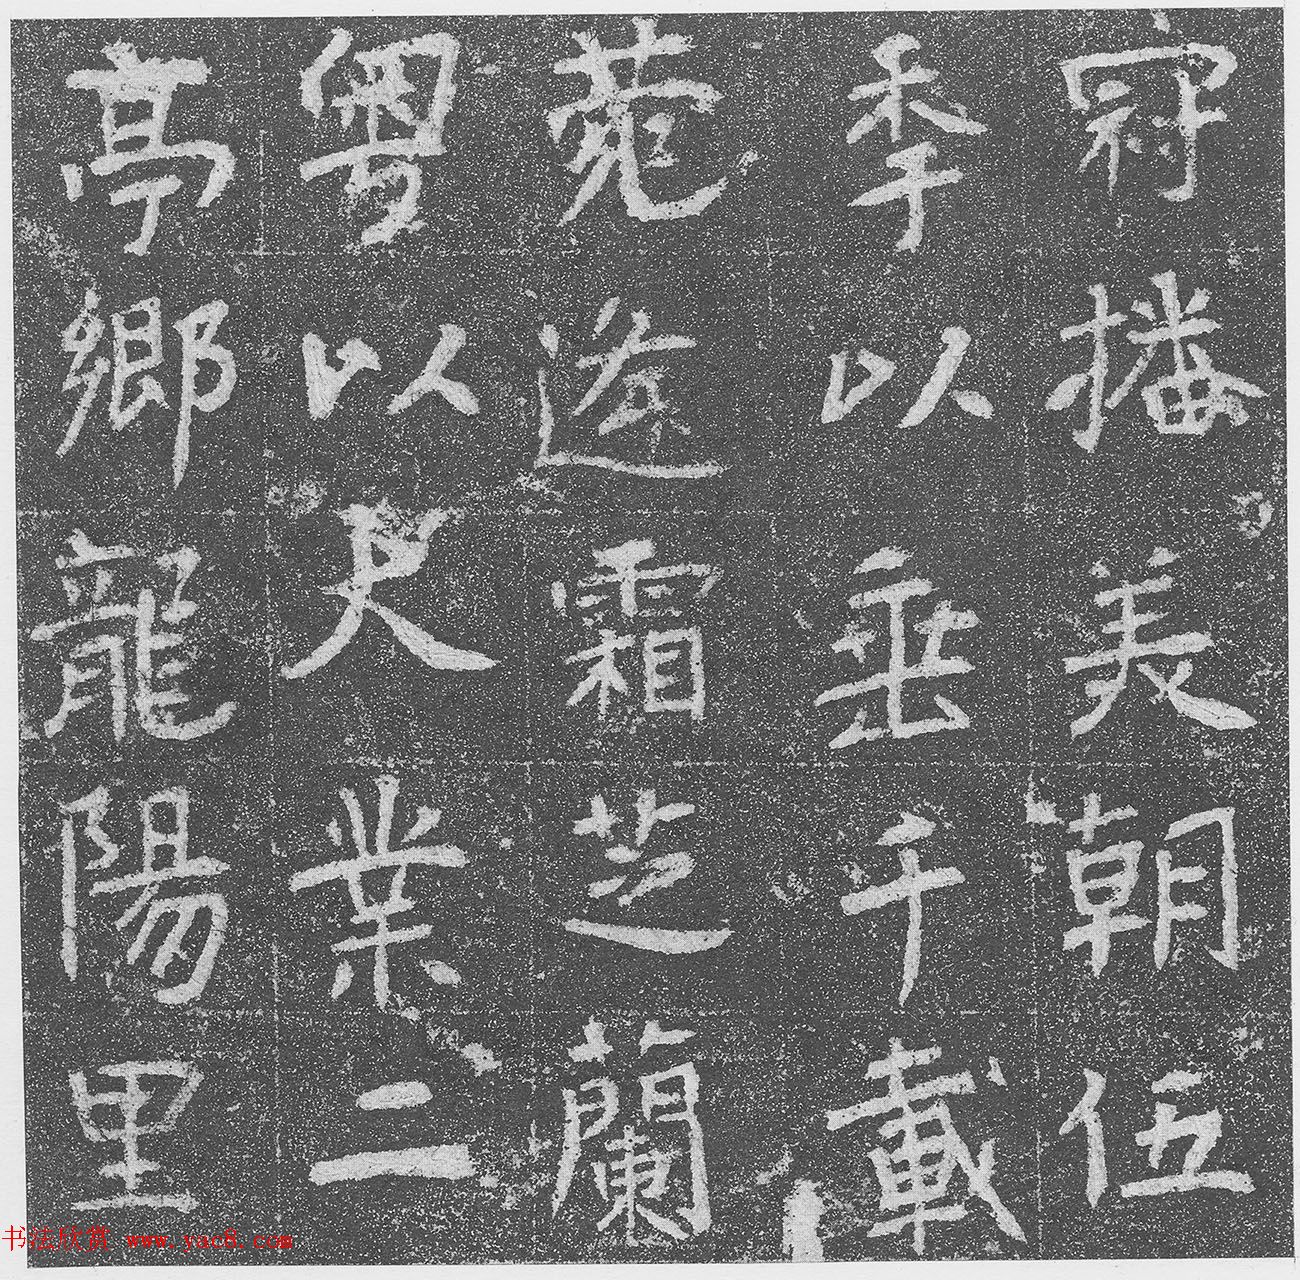 冠播美朝伍
季以垂千載
菀逢霜芝蘭
粤以大業二
亭鄉龍陽里
书法欣赏 www.yac8.com